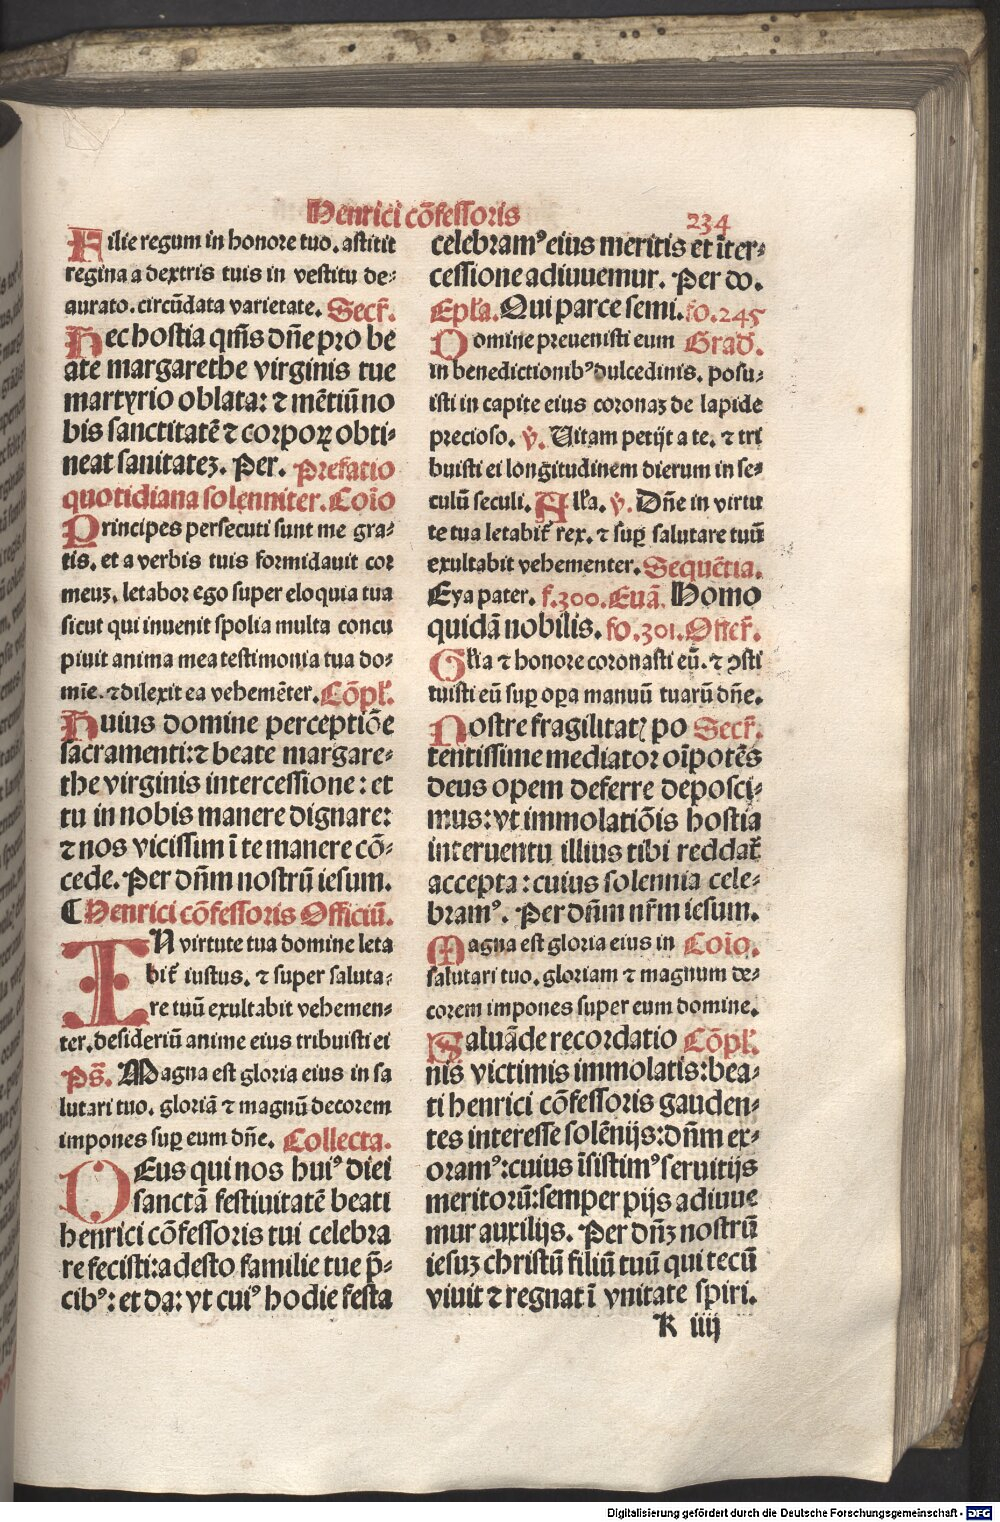 Henrici cōfessoris
234
Filie regum in honore tuo. astitit
regina a dextris tuis in vestitu de⸗
aurato. circūdata varietate. Secr̄.
Hec hostia qm̄s dn̄e pro be
ate margarethe virginis tue
martyrio oblata: ⁊ mētiū no
bis sanctitatē ⁊ corporꝝ obti⸗
neat sanitateꝫ. Per. Prefatio
quotidiana solenniter. Coīo
Principes persecuti sunt me gra⸗
tis. et a verbis tuis formidauit cor
meuꝫ. letabor ego super eloquia tua
sicut qui inuenit spolia multa concu
piuit anima mea testimonia tua do⸗
mīe. ⁊ dilexit ea vehemēter. Cōpl̄.
Huius domine perceptiōe
sacramenti: ⁊ beate margare⸗
the virginis intercessione: et
tu in nobis manere dignare:
⁊ nos vicissim ī te manere cō⸗
cede. Per dn̄m nostrū iesum.
¶ Henrici cōfessoris Officiū.
IN virtute tua domine leta
bit̄ iustus. ⁊ super saluta⸗
re tuū exultabit vehemen⸗
ter. desideriū anime eius tribuisti ei
Ps̄. Magna est gloria eius in sa
lutari tuo. gloriā ⁊ magnū decorem
impones suꝑ eum dn̄e. Collecta.
DEus qui nos huiꝰ diei
sanctā festiuitatē beati
henrici cōfessoris tui celebra
re fecisti: adesto familie tue p̄⸗
cibꝰ: et da: vt cuiꝰ hodie festa
celebramꝰ eius meritis et īter⸗
cessione adiuuemur. Per do.
Epl̄a. Qui parce semi. fo. 245
Domine preuenisti eum Grad̄.
in benedictionibꝰ dulcedinis. posu⸗
isti in capite eius coronaꝫ de lapide
precioso. ℣. Uitam petijt a te. ⁊ tri
buisti ei longitudinem dierum in se⸗
culū seculi. All̄a. ℣. Dn̄e in virtu
te tua letabit̄ rex. ⁊ suꝑ salutare tuū
exultabit vehementer. Sequētia.
Eya pater. f. 300. Euā. Homo
quidā nobilis. fo. 301. Offer̄.
Gl̄ia ⁊ honore coronasti eū. ⁊ ꝯsti
tuisti eū suꝑ oꝑa manuū tuarū dn̄e.
Nostre fragilitatꝭ po Secr̄.
tentissime mediator oīpotēs
deus opem deferre deposci⸗
mus: vt immolatiōis hostia
interuentu illius tibi reddat̄
accepta: cuius solennia cele⸗
bramꝰ. Per dn̄m nr̄m iesum.
Magna est gloria eius in Coīo.
salutari tuo. gloriam ⁊ magnum de⸗
corem impones super eum domine.
Saluāde recordatio Cōpl̄.
nis victimis immolatis: bea⸗
ti henrici cōfessoris gauden⸗
tes interesse solēnijs: dn̄m ex⸗
oramꝰ: cuius īsistimꝰ seruitijs
meritorū: semper pijs adiuue
mur auxilijs. Per dn̄ꝫ nostrū
iesuꝫ christū filiū tuū qui tecū
viuit ⁊ regnat ī vnitate spiri.
K iiij
Digitalisierung gefördert durch die Deutsche Forschungsgemeinschaft - DFG